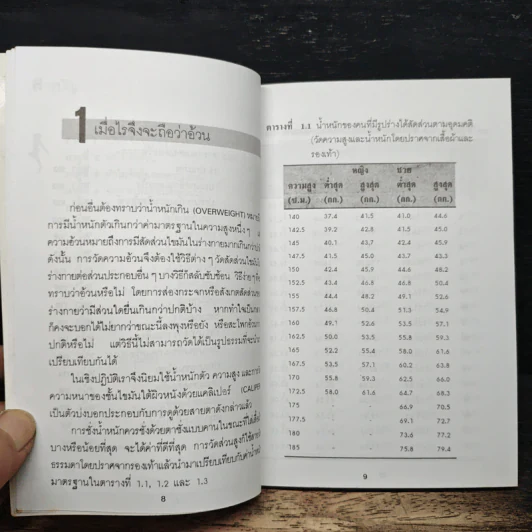 1 เมื่อไรจึงจะถือว่าอ้วน
ก่อนอื่นต้องทราบว่าน้ำหนักเกิน (OVERWEIGHT)
การมีน้ำหนักตัวเกินกว่าค่ามาตรฐานในความสูงหนึ่ง ๆ
ความอ้วนหมายถึงการมีสัดส่วนไขมันในร่างกายมากเกินกว่า
ดังนั้น การวัดความอ้วนจึงต้องใช้วิธีต่าง ๆ วัดสัดส่วน
ร่างกายต่อส่วนประกอบอื่น ๆ บางวิธีก็สลับซับซ้อน วิธีง่าย ๆ
ทราบว่าอ้วนหรือไม่ โดยการส่องกระจกหรือสังเกตสัดส่วน
ร่างกายว่ามีส่วนใดยื่นเกินกว่าปกติบ้าง หากทำใจเป็น
ก็คงจะบอกได้ไม่ยากว่าขณะนี้ลงพุงหรือยัง หรือสะโพก
ปกติหรือไม่ แต่วิธีนี้ไม่สามารถวัดได้เป็นรูปธรรมที่จะ
เปรียบเทียบกันได้
ในเชิงปฏิบัติเราจึงนิยมใช้น้ำหนักตัว ความสูง และการ
ความหนาของชั้นไขมันใต้ผิวหนังด้วยแคลิเปอร์
เป็นตัวบ่งบอกประกอบกับการดูด้วยสายตาดังกล่าวแล้ว
การชั่งน้ำหนักควรชั่งด้วยตาชั่งแบบคานในขณะที่ใส่เสื้อ
บางหรือน้อยที่สุด จะได้ค่าที่ดีที่สุด การวัดส่วนสูงก็ใช้
ธรรมดาโดยปราศจากรองเท้าแล้วนำมาเปรียบเทียบกับค่า
มาตรฐานในตารางที่ 1.1, 1.2 และ 1.3
8
ตารางที่ 1.1 น้ำหนักของคนที่มีรูปร่างได้สัดส่วนตามอุดมคติ
(วัดความสูงและน้ำหนักโดยปราศจากเสื้อผ้าและ
รองเท้า)
หญิง ชาย
ความสูง ต่ำสุด สูงสุด ต่ำสุด สูงสุด
(ซ.ม.) (กก.) (กก.) (กก.) (กก.)
140 37.4 41.5 41.0 44.6
142.5 39.2 42.8 41.5 45.0
145 40.1 43.7 42.4 45.9
147.5 41.5 45.0 43.7 47.3
150 42.4 45.9 44.6 48.2
152.5 43.4 46.8 46.8 50.4
155 44.4 48.2 49.1 52.6
157.5 46.8 50.4 51.3 54.9
160 49.1 52.6 53.5 57.1
162.5 50.0 53.5 55.8 59.3
165 52.2 55.4 58.0 61.6
167.5 53.5 57.1 60.2 63.8
170 55.8 59.3 62.5 66.0
172.5 58.0 61.6 64.7 68.3
175 - - 66.9 70.5
177.5 - - 69.1 72.7
180 - - 73.6 77.2
185 - - 75.8 79.4
9